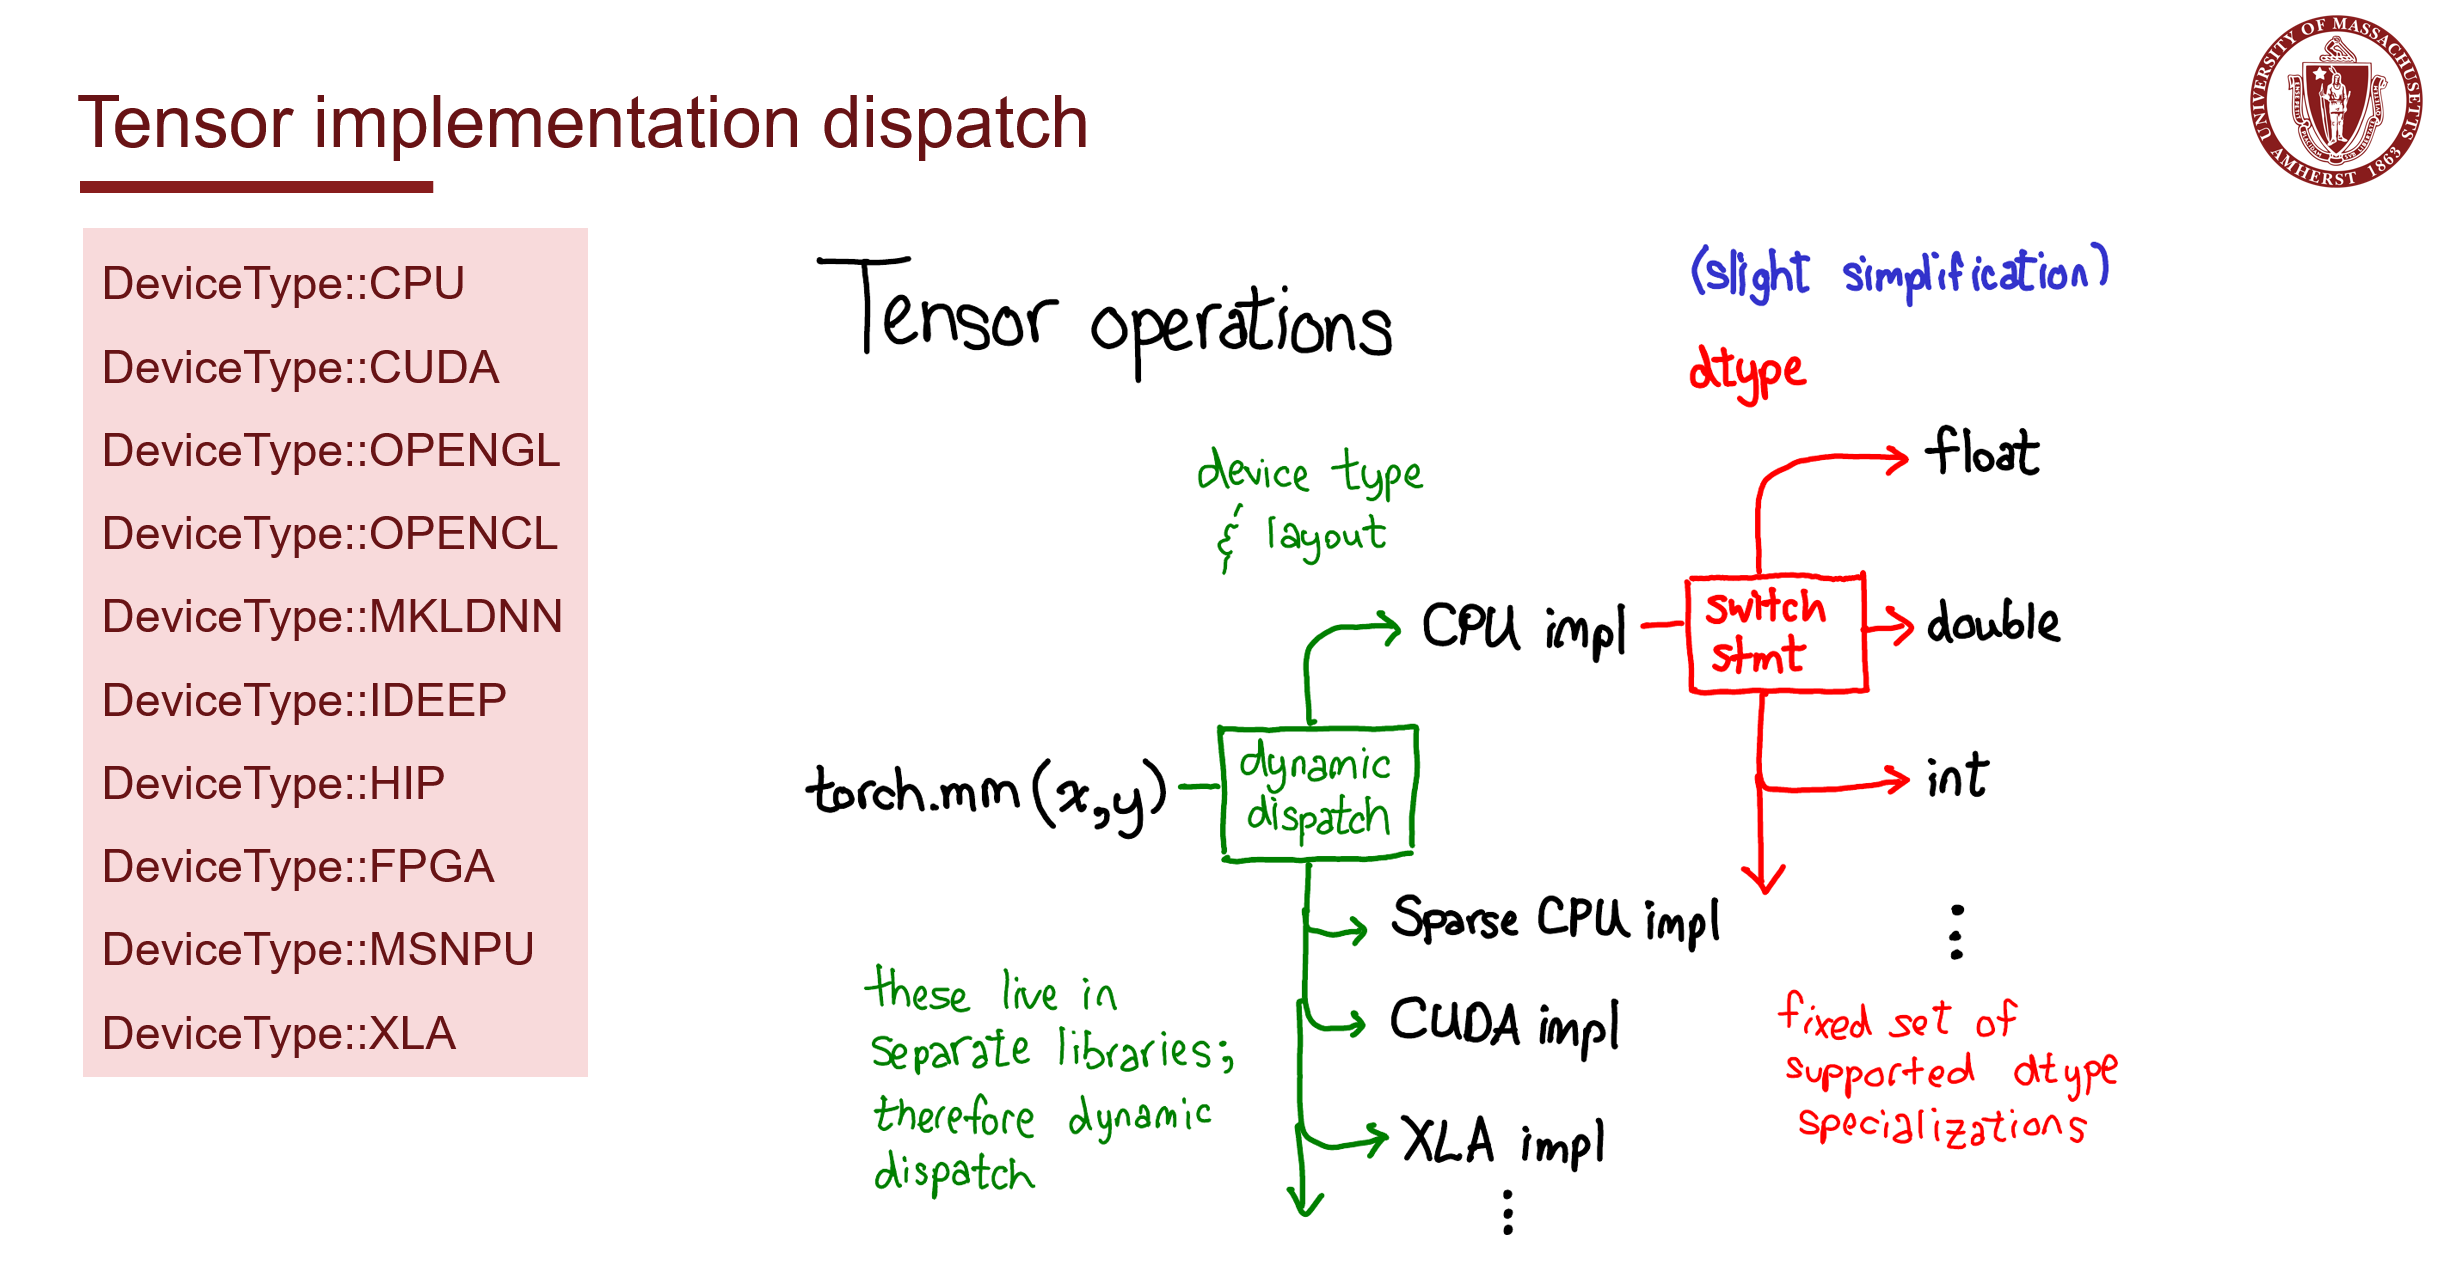 Tensor implementation dispatch
UNIVERSITY OF MASSACHUSETTS
AMHERST 1863
DeviceType::CPU
DeviceType::CUDA
DeviceType::OPENGL
DeviceType::OPENCL
DeviceType::MKLDNN
DeviceType::IDEEP
DeviceType::HIP
DeviceType::FPGA
DeviceType::MSNPU
DeviceType::XLA
Tensor operations
(slight simplification)
dtype
device type
& layout
float
CPU impl
switch
stmt
double
torch.mm(x,y)
dynamic
dispatch
int
Sparse CPU impl
CUDA impl
XLA impl
these live in
separate libraries;
therefore dynamic
dispatch
fixed set of
supported dtype
specializations